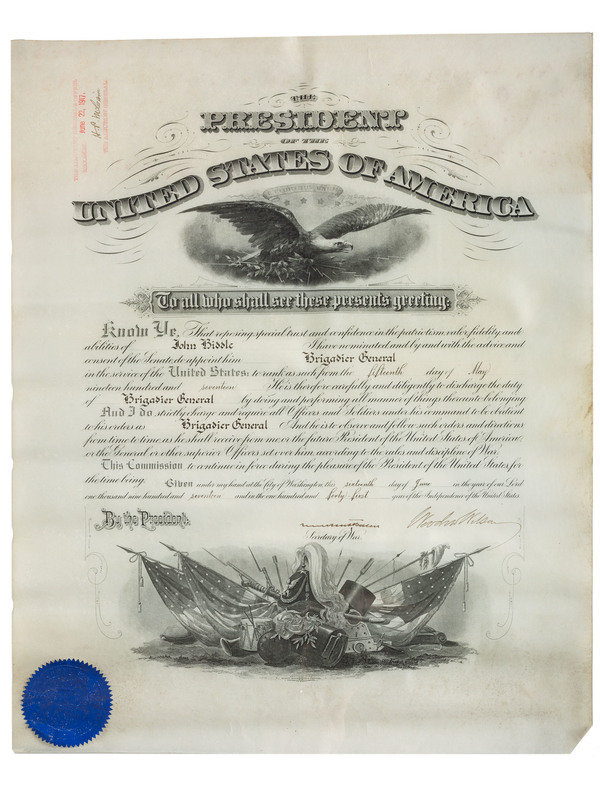 June 22, 1917.
THE
PRESIDENT
OF THE
UNITED STATES OF AMERICA
To all who shall see these presents greeting:
Know Ye, That reposing special trust and confidence in the patriotism, valor, fidelity and
abilities of John Biddle I have nominated and by and with the advice and
consent of the Senate do appoint him Brigadier General
in the service of the United States: to rank as such from the fifteenth day of May
nineteen hundred and seventeen He is therefore carefully and diligently to discharge the duty
of Brigadier General by doing and performing all manner of things thereunto belonging
And I do strictly charge and require all Officers and Soldiers under his command to be obedient
to his orders as Brigadier General And he is to observe and follow such orders and directions
from time to time as he shall receive from me or the future President of the United States of America
or the General or other superior Officers set over him, according to the rules and discipline of War.
This Commission to continue in force during the pleasure of the President of the United States for
the time being.
Given under my hand at the City of Washington, this sixteenth day of June in the year of our Lord
one thousand nine hundred and seventeen and in the one hundred and forty first year of the Independence of the United States.
By the President:
Woodrow Wilson
Secretary of War.